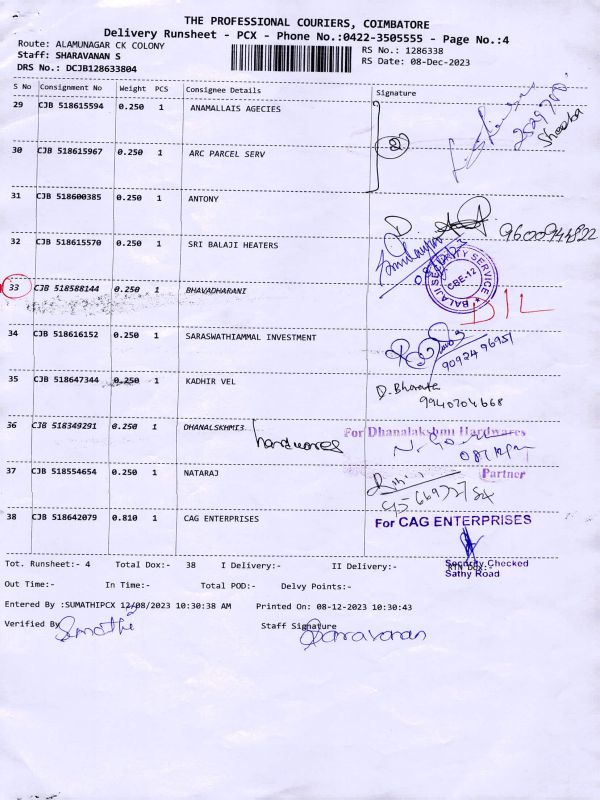 THE PROFESSIONAL COURIERS, COIMBATORE
Delivery Runsheet - PCX - Phone No.:0422-3505555 - Page No.:4
Route: ALAMUNAGAR CK COLONY
RS No.: 1286338
Staff: SHARAVANAN S
RS Date: 08-Dec-2023
DRS No.: DCJB128633804
S No Consignment No Weight PCS Consignee Details Signature
29 CJB 518615594 0.250 1 ANAMALLAIS AGECIES
Shooba
30 CJB 518615967 0.250 1 ARC PARCEL SERV
31 CJB 518600385 0.250 1 ANTONY
9600944822
32 CJB 518615570 0.250 1 SRI BALAJI HEATERS
33 CJB 518588144 0.250 1 BHAVADHARANI
BALAJI SECURITY SERVICE
CBE-12
D/L
34 CJB 518616152 0.250 1 SARASWATHIAMMAL INVESTMENT
9092496951
35 CJB 518647344 0.250 1 KADHIR VEL
D. Bharath
9940704668
36 CJB 518349291 0.250 1 DHANALSKHMI3 hardwares
For Dhanalakshmi Hardwares
Partner
37 CJB 518554654 0.250 1 NATARAJ
38 CJB 518642079 0.810 1 CAG ENTERPRISES
For CAG ENTERPRISES
Security Checked
Sathy Road
Tot. Runsheet:- 4 Total Dox:- 38 I Delivery:- II Delivery:- RTN Dox:-
Out Time:- In Time:- Total POD:- Delvy Points:-
Entered By :SUMATHIPCX 12/08/2023 10:30:38 AM Printed On: 08-12-2023 10:30:43
Verified By Sumathi Staff Signature Saravanan